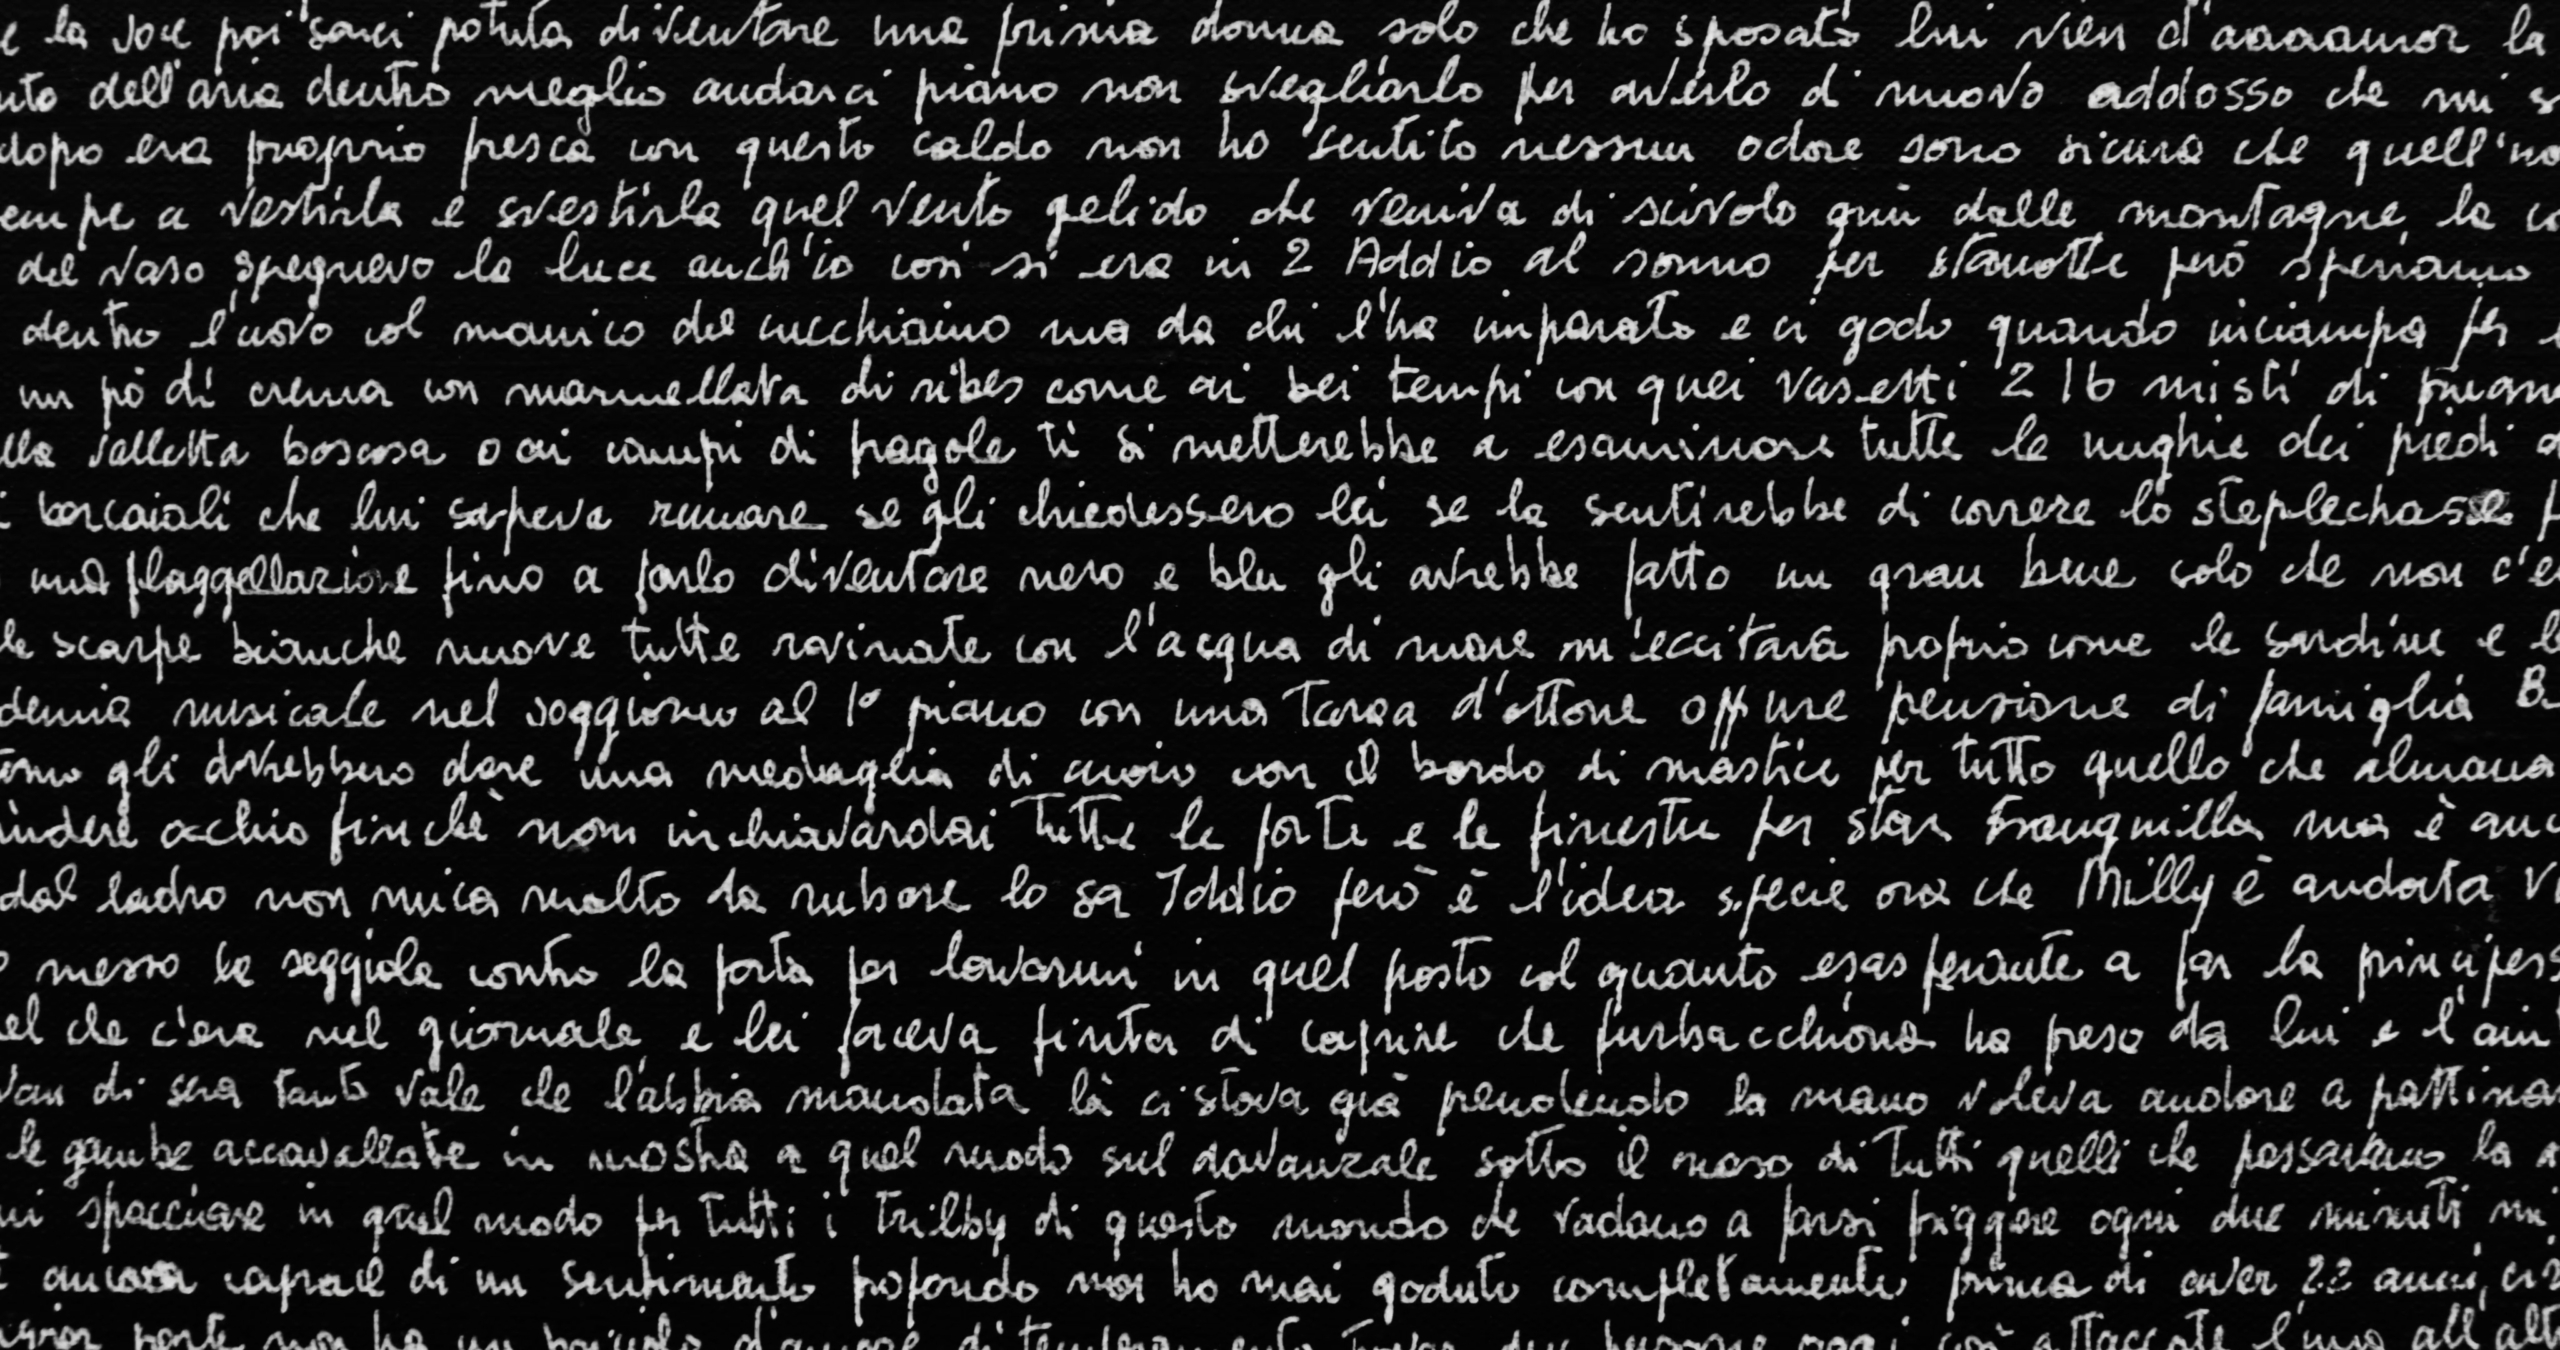 e la voce poi sarei potuta diventare una prima donna solo che ho sposato lui vien d'aaaamor la
uto dell'aria dentro meglio andarci piano non svegliarlo per averlo di nuovo addosso che mi s
dopo era proprio fresca con questo caldo non ho sentito nessun odore sono sicura che quell'uo
empe a vestirla e svestirla quel vento gelido che veniva di scivolo giù dalle montagne la co
del vaso spegnevo la luce anch'io così si era in 2 Addio al sonno per stanotte però speriamo
dentro l'uovo col manico del cucchiaino ma da chi l'ha imparato e ci godo quando inciampa per
un pò di crema con marmellata di ribes come ai bei tempi con quei vasetti 2 lb misti di
lla valletta boscosa o ai campi di fragole ti si metterebbe a esaminare tutte le unghie dei piedi
i barcaioli che lui sapeva remare se gli chiedessero lei se la sentirebbe di correre lo steplechasse
una flaggellazione fino a farlo diventare nero e blu gli avrebbe fatto un gran bene solo che non c'e
le scarpe bianche nuove tutte rovinate con l'acqua di mare m'eccitava proprio come le sardine e le
demia musicale nel soggiorno al 1° piano con una targa d'ottone oppure pensione di famiglia B
gli dovrebbero dare una medaglia di cuoio con il bordo di mastice per tutto quello che almana
indere occhio finchè non inchiavardai tutte le porte e le finestre per star tranquilla ma è anc
dal ladro non mica molto da rubare lo sa Iddio però è l'idea specie ora che Milly è andata v
o messo la seggiola contro la porta per lavarmi in quel posto col guanto esasperante a far la principess
el che c'era nel giornale e lei faceva finta di capire che furbacchiona ha preso da lui e l'aiu
van di sera tanto vale che l'abbia mandata là ci stava già prendendo la mano voleva andare a pattinar
le gambe accavallate in mostra a quel modo sul davanzale sotto il naso di tutti quelli che passavano la
spacciare in quel modo per tutti i Trilby di questo mondo che vadano a farsi friggere ogni due minuti mi
ancora capace di un sentimento profondo non ho mai goduto completamente prima di aver 22 anni, ci
parte non ha un briciolo d'amore di temperamento trovar due persone oggi così attaccate l'uno all'alt